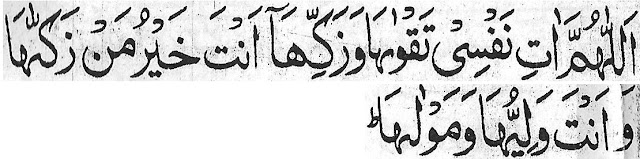 اَللّٰهُمَّ اٰتِ نَفْسِیْ تَقْوٰىهَا وَزَكِّهَآ اَنْتَ خَیْرُ مَنْ زَكّٰىهَا
وَ اَنْتَ وَلِیُّهَا وَمَوْلٰىهَا ؕ